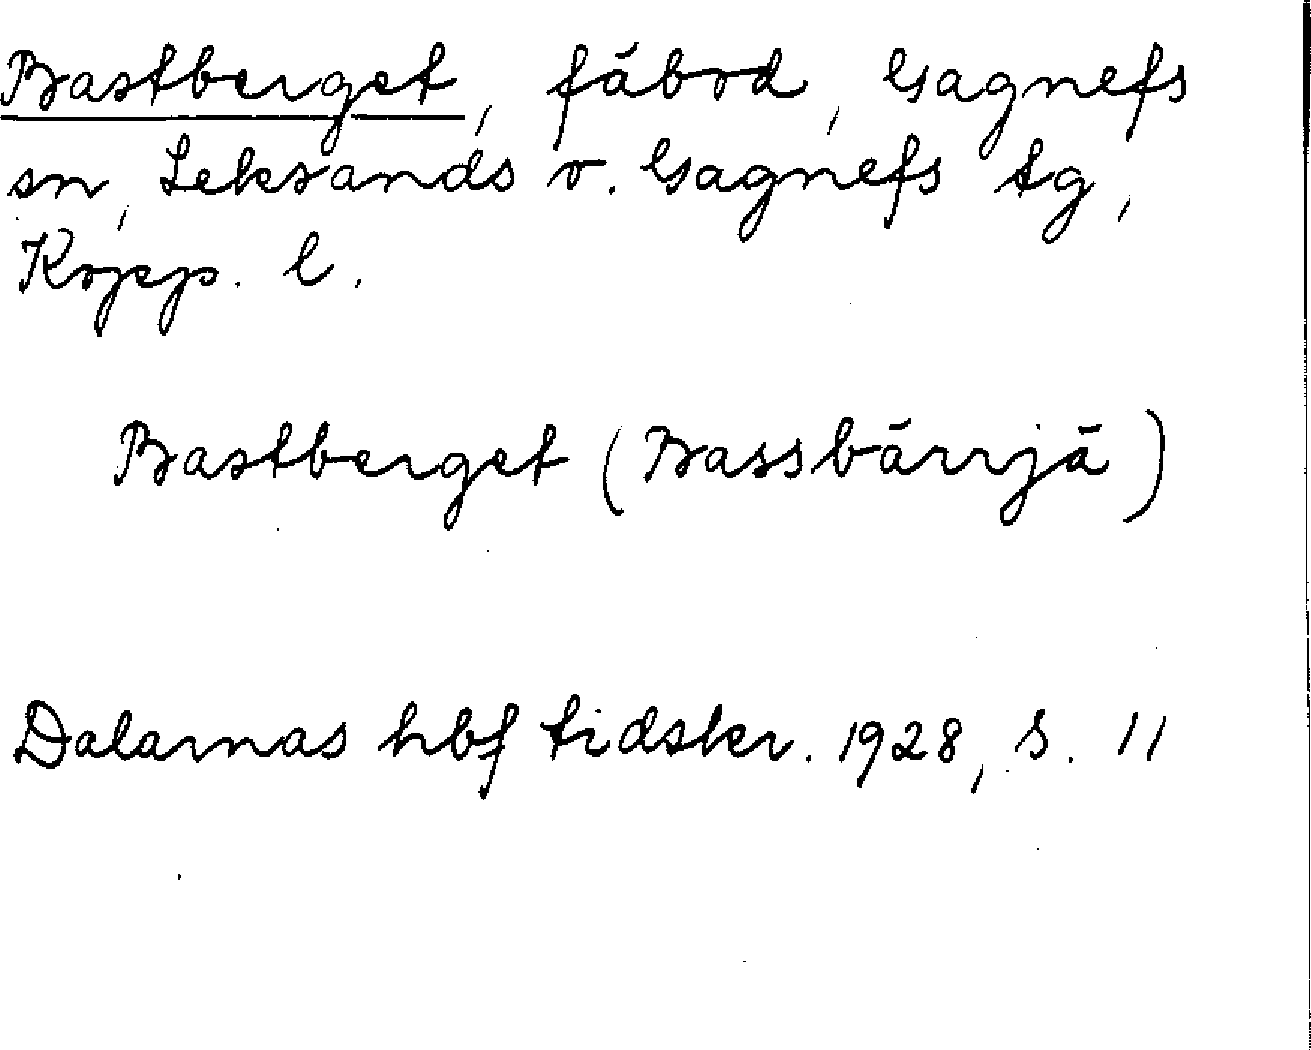 Bastberget, fäbod, Gagnefs
sn, Leksands o. Gagnefs tg,
Kopp. l.
Bastberget (Bassbärrjä)
Dalarnas hbf tidskr. 1928, s. 11